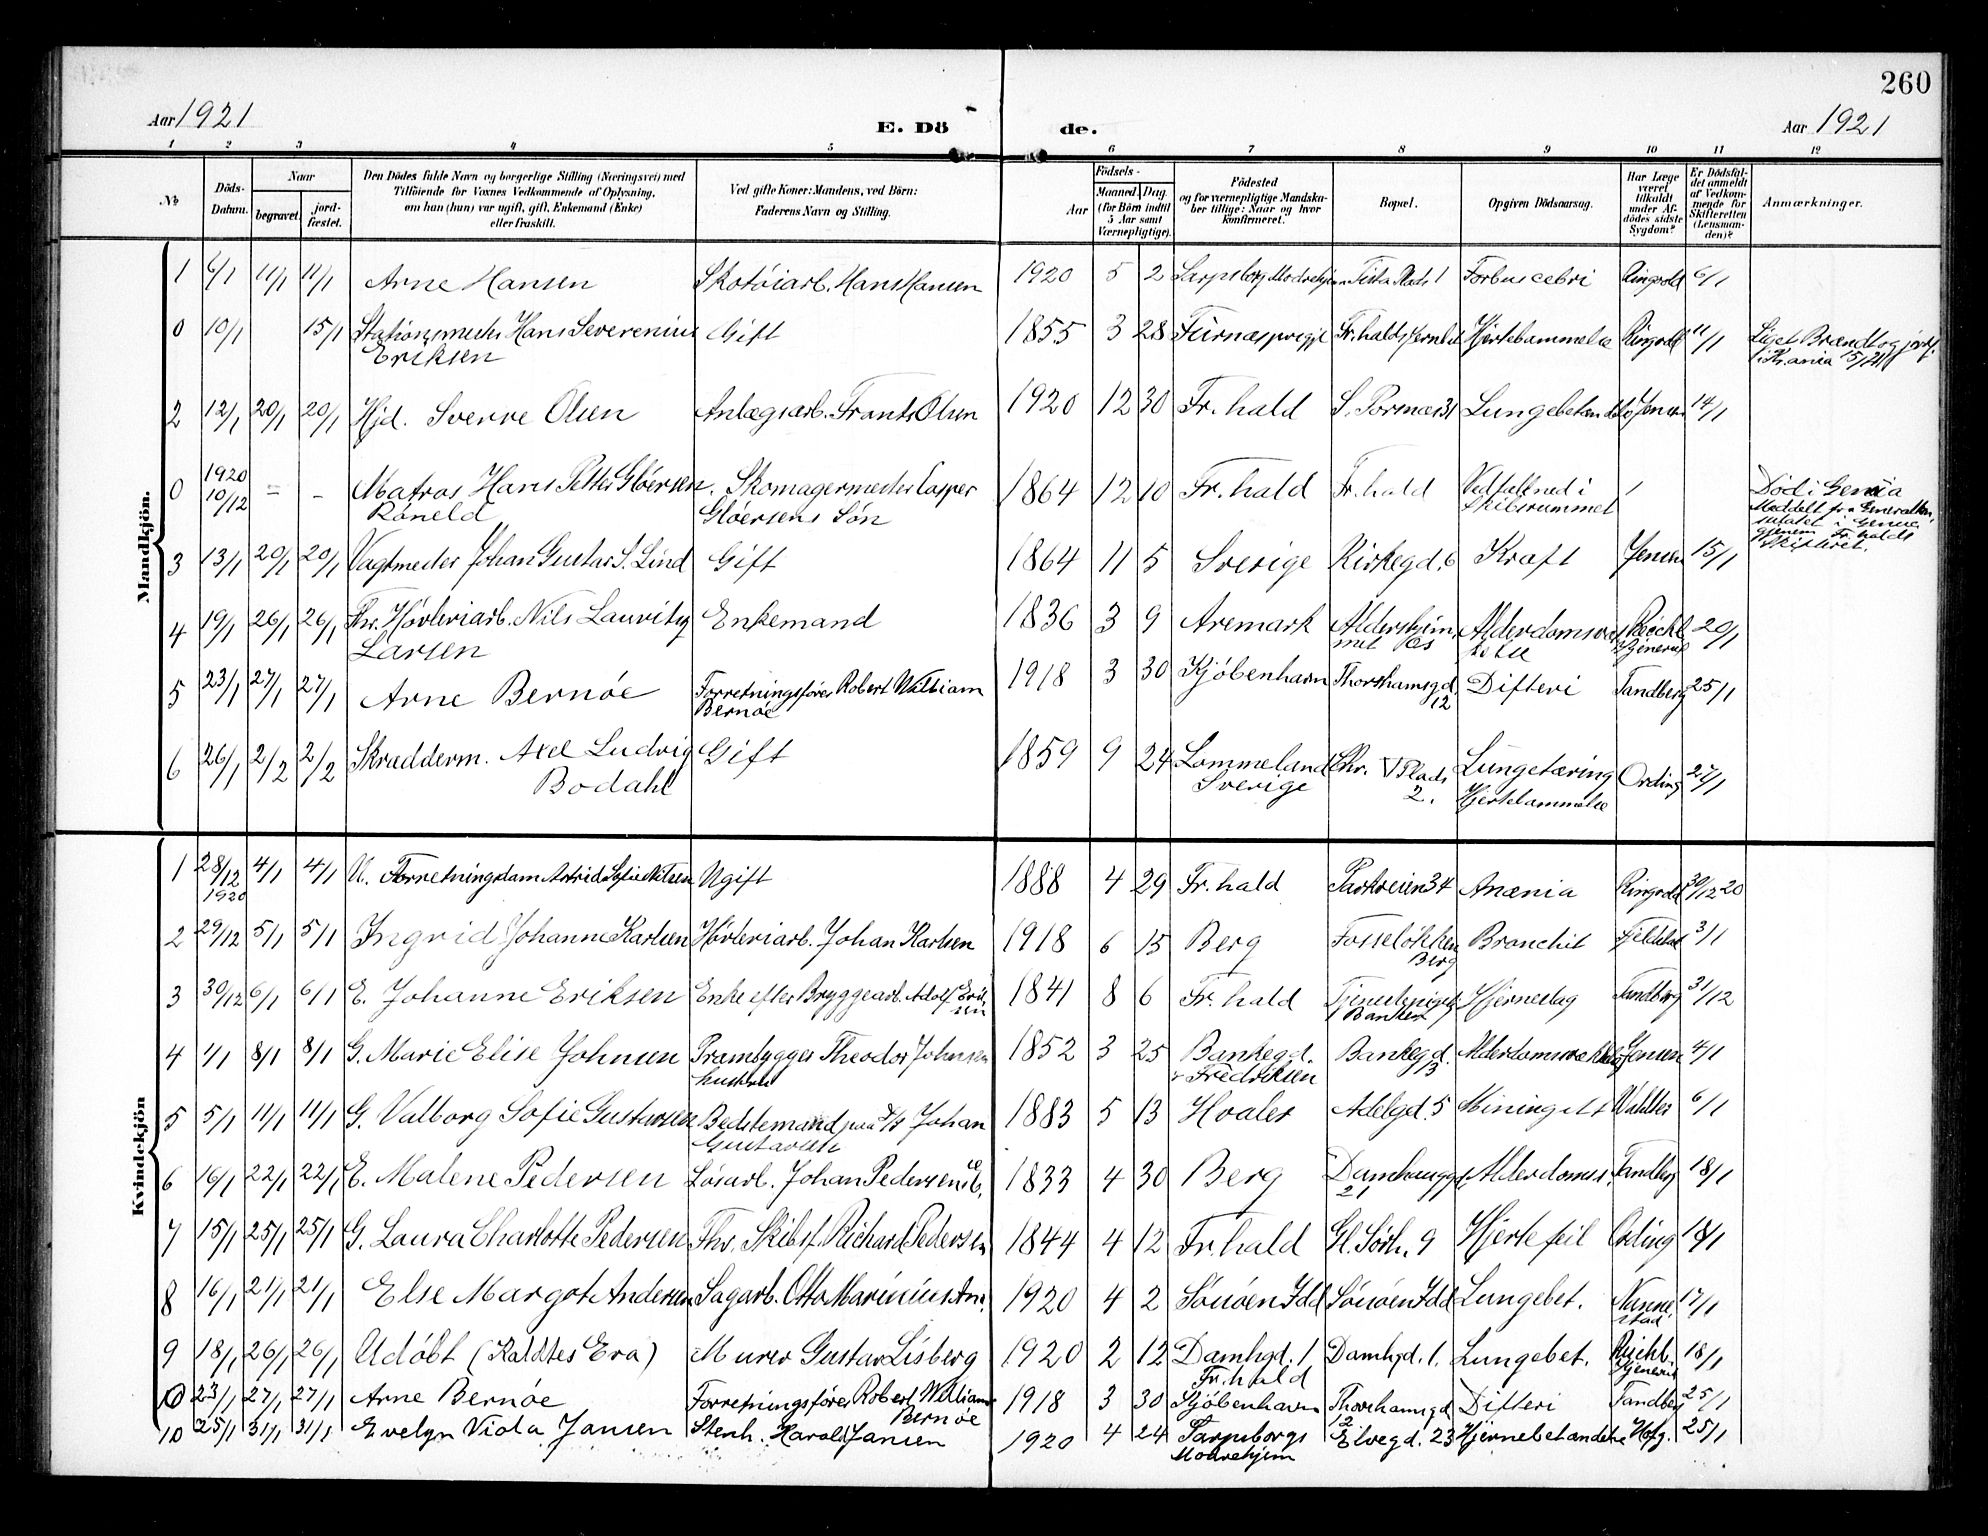 260
Aar 1921 E. Dö de. Aar 1921
1 2 3 4 5 6 7 8 9 10 11 12
No
Döds-Datum.
Naar
begravet. jord-fæstet.
Den Dödes fulde Navn og borgerlige Stilling (Næringsvei) med
Tilföiende for Voxnes Vedkommende af Oplysning,
om han (hun) var ugift, gift, Enkemand (Enke)
eller fraskilt.
Ved gifte Koner: Mandens, ved Börn:
Faderens Navn og Stilling.
Födsels-
Aar Maaned. Dag.
(for Börn indtil
5 Aar samt
Værnepligtige).
Födested
og for værnepligtige Mandska-
ber tillige: Naar og hvor
konfirmeret.
Bopæl.
Opgiven Dödsaarsag.
Har Læge
været
tilkaldt
under Af-
dödes sidste
Sygdom?
Er Dödsfal-
det anmeldt
af Vedkom-
mende for
Skifteretten
(Lensman-
den)?
Anmærkninger.
Mandkjön.
1 6/1 11/1 11/1 Arne Hansen Skotöiarb. Hans Hansen 1920 5 2 Sarpsborg Tista Plads 1 Ringvold 6/1
0 10/1 15/1 Stationsmester Hans Severenius Gift 1855 3 28 Hjertelammelse Ringvold 11/1 Liget Brændt og jordf.
Eriksen i Kr.ania 15/1 21
2 12/1 20/1 20/1 Hjd. Sverre Olsen Anlægsarb. Frants Olsen 1920 12 30 Fr.hald 31 Jensen 14/1
0 1920 10/12 = - Matros Hans Petter Glöersen Skomagermester Casper 1864 12 10 Fr.hald Fr.hald Ved fall ned i / Död i Genua
Röneld Glöersens Sön Skibsrummet Meddelt fra Generalkon-
sulatet i Genua
gjenem Fr.halds
Skifteret.
3 13/1 20/1 20/1 Vagtmester Johan Gustav S. Lind Gift 1864 11 5 Sverige Kirkegd. 6 Kræft Jensen 15/1
4 19/1 26/1 26/1 Fhv. Hövleriarb. Nils Lauritz Enkemand 1836 3 9 Aremark Aldershjem Alderdomssvag 20/1
Larsen
5 23/1 27/1 27/1 Arne Bernöe Forretningsförer Robert William 1918 3 30 Kjöbenhavn Thorshaugsgd. Difteri Tandberg 25/1
Bernöe 12
6 26/1 2/2 2/2 Skrædderm. Axel Ludvig Gift 1859 9 24 Lommeland Chr. V Plads Lungetæring Ording 27/1
Bodahl Sverige 2. Hjertelammelse
Kvindekjön
1 28/12 4/1 4/1 U. Forretningsdam Astrid Sofie Nilsen Ugift 1888 4 29 Fr.hald Parkveien 34 Anæmia Ringvold 30/12 20
1920
2 29/12 5/1 5/1 Ingrid Johanne Karlsen Hövleriarb. Johan Karlsen 1918 6 15 Berg Fosselökken Bronchit 3/1
Berg
3 30/12 6/1 6/1 E. Johanne Eriksen Enke efter Bryggearb. Adolf Erik- 1841 8 6 Fr.hald Hjerneslag Tandberg 31/12
sen
4 1/1 8/1 8/1 G. Marie Elise Johnsen Prambygger Theodor Johnsen 1852 3 25 Bankegd. Bankegd. Jensen 4/1
hustru v Fredriksen 13
5 5/1 11/1 11/1 G. Valborg Sofie Gustavsen Bedstemand paa Johan 1883 5 13 Hvaler Adelgd. 5 Miningit Walther 6/1
Gustavsen
6 16/1 22/1 22/1 E. Malene Pedersen Lösarb. Johan Pedersen 1833 4 30 Berg Damhaugg. Alderdomss. Tandberg 18/1
21
7 15/1 25/1 25/1 G. Laura Charlotte Pedersen Fhv. Skibsf. Richard Pedersen 1844 4 12 Fr.hald Gl. Sörh. 9 Hjertefeil Ording 18/1
8 16/1 21/1 21/1 Else Margot Andersen Sagarb. Otto Marinius An. 1920 4 2 Sönöen Idd Sönöen Idd Lungebet. Nanne- 17/1
stad
9 18/1 26/1 26/1 Udöbt (Kaldtes Eva) Murer Gustav Lisberg 1920 2 12 Damhgd. 1 Damhgd. 1. Lungebet. 18/1
Fr.hald
10 23/1 27/1 27/1 Arne Bernöe Forretningsförer Robert William 1918 3 30 Kjöbenhavn Thorshaugsgd. Difteri Tandberg 25/1
Bernöe 12
10 25/1 31/1 31/1 Evelyn Viola Jansen Stenh. Harald Jansen 1920 4 24 Sarpsborgs Elvegd. 23 Hjernebetændelse 25/1
Mödrehjem